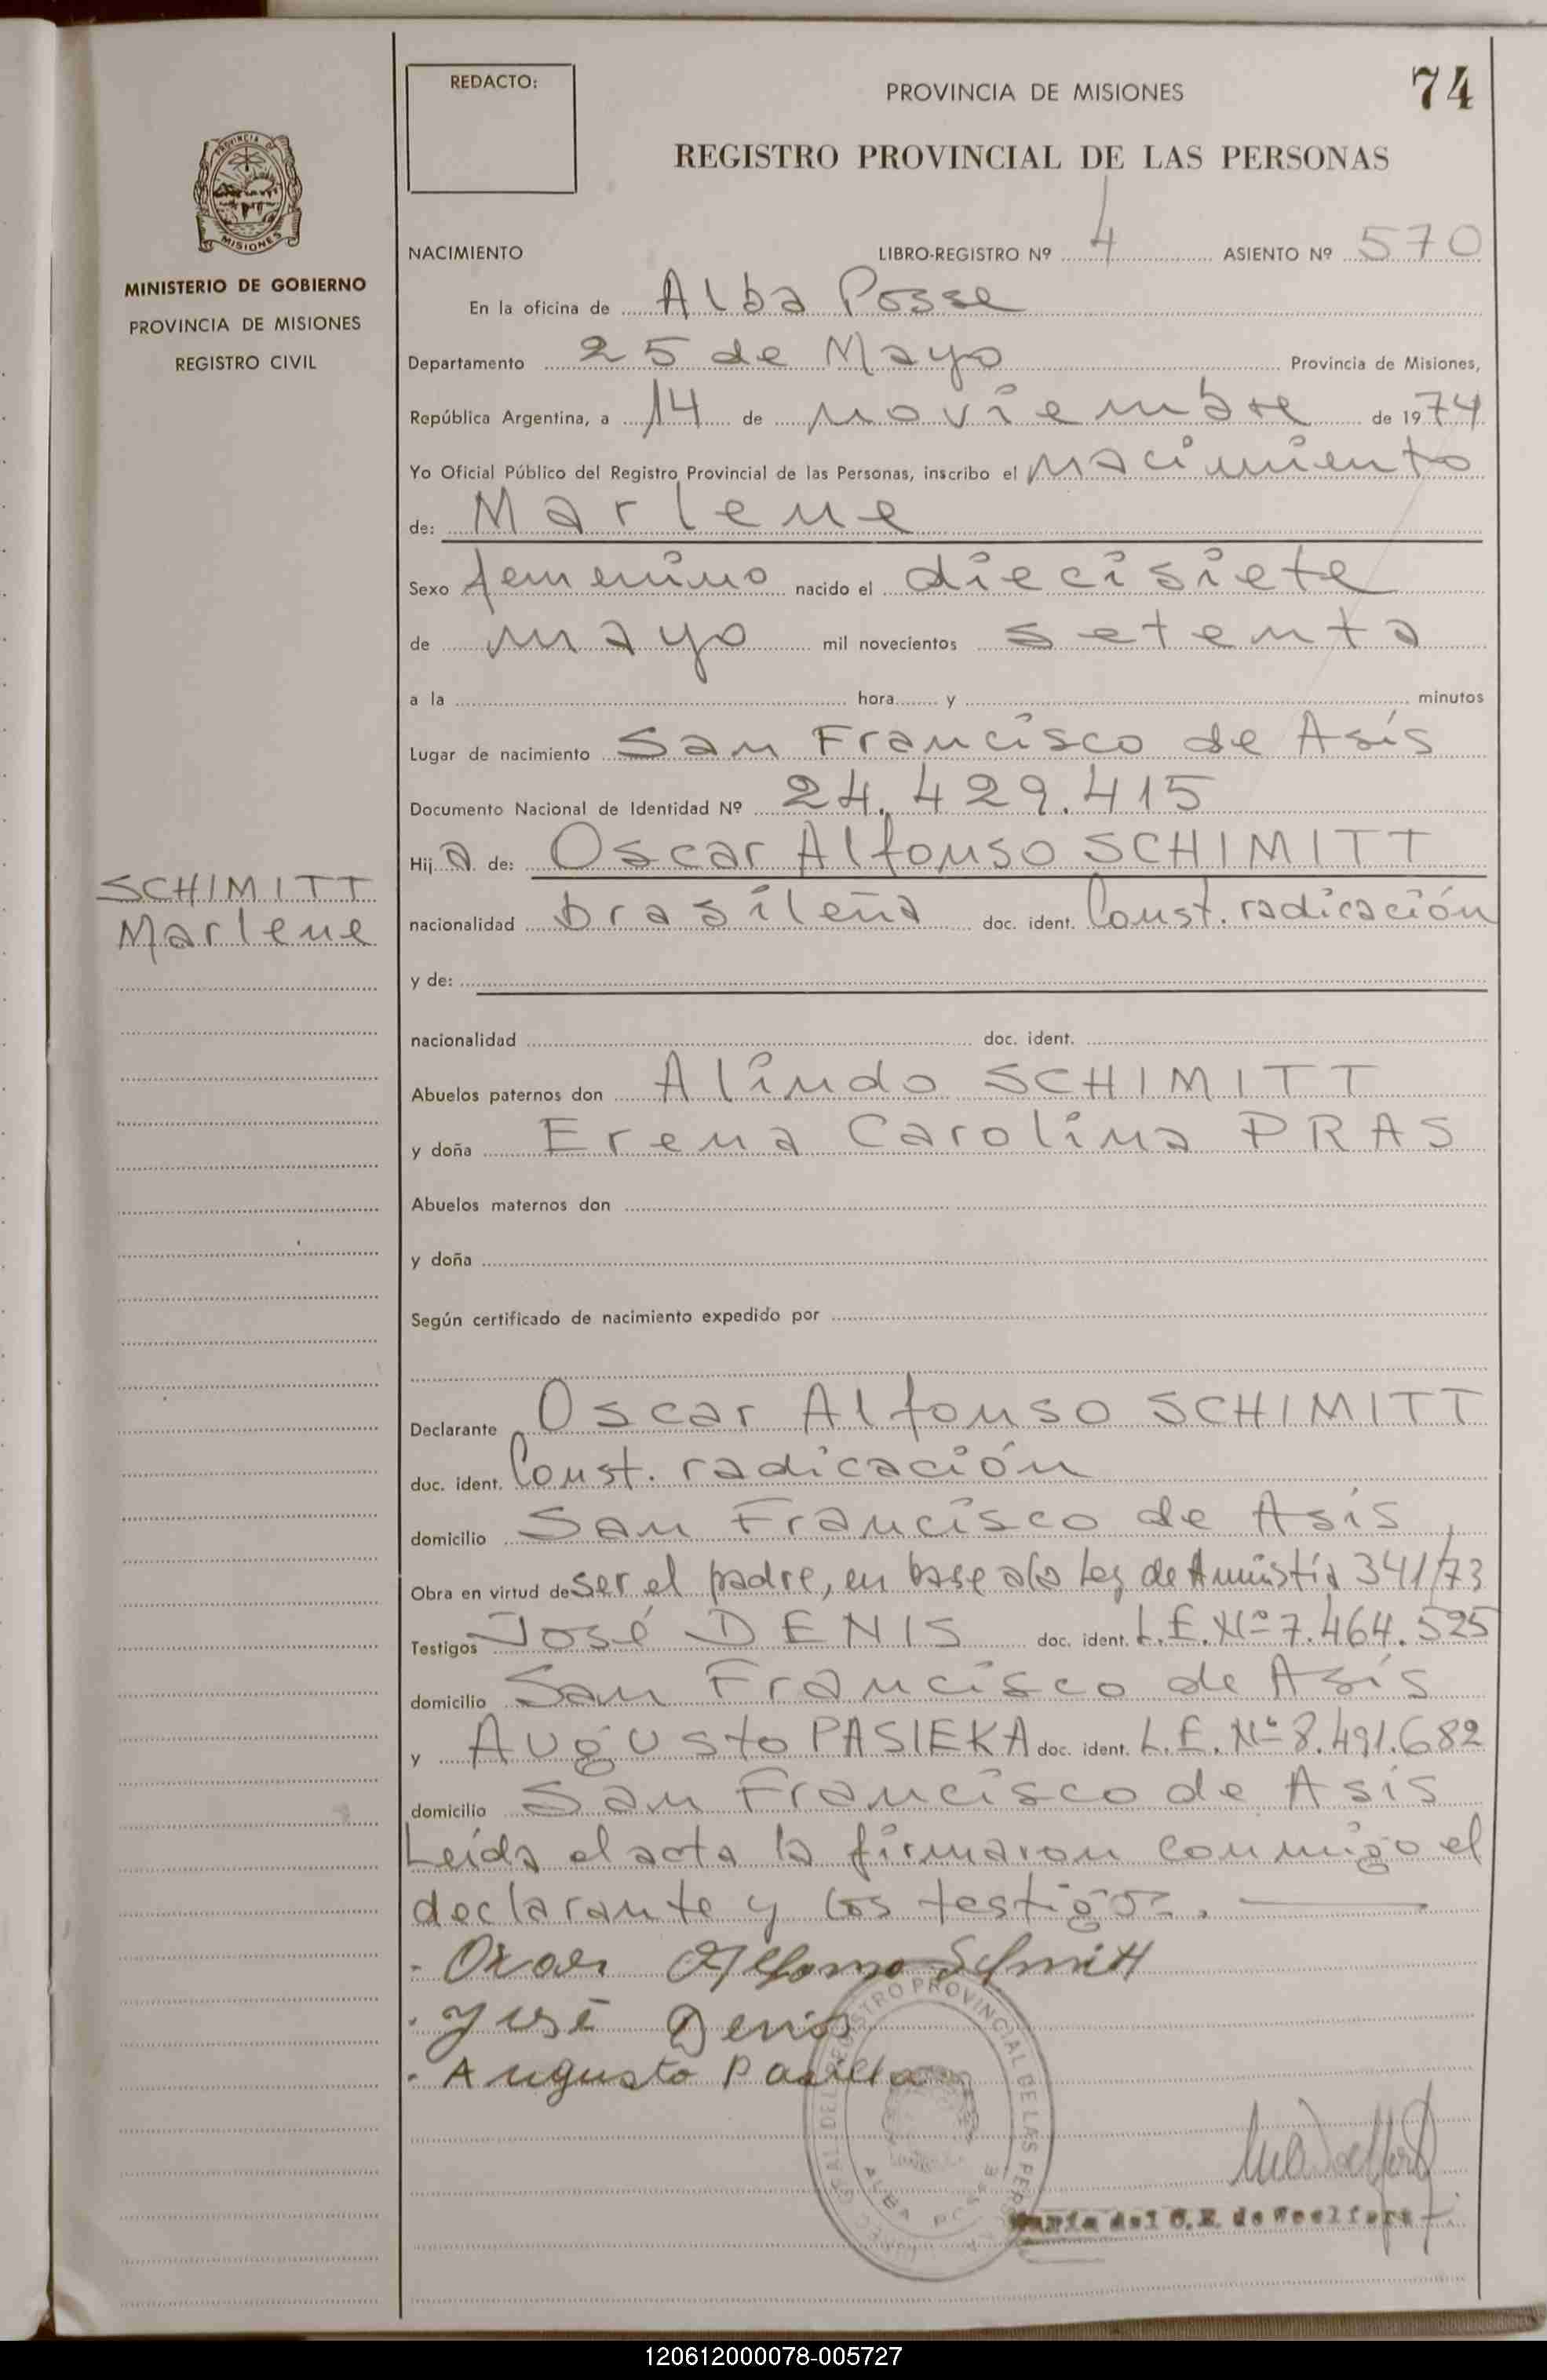 REDACTO:
PROVINCIA DE MISIONES
74
REGISTRO PROVINCIAL DE LAS PERSONAS
PROVINCIA DE
MISIONES
MINISTERIO DE GOBIERNO
PROVINCIA DE MISIONES
REGISTRO CIVIL
NACIMIENTO LIBRO-REGISTRO Nº 4 ASIENTO Nº 570
En la oficina de Alba Posse
Departamento 25 de Mayo Provincia de Misiones,
República Argentina, a 14 de noviembre de 1974
Yo Oficial Público del Registro Provincial de las Personas, inscribo el nacimiento
de: Marlene
Sexo femenino nacido el diecisiete
de mayo mil novecientos setenta
a la hora y minutos
Lugar de nacimiento San Francisco de Asís
Documento Nacional de Identidad Nº 24.429.415
Hija de: Oscar Alfonso SCHIMITT
SCHIMITT
Marlene
nacionalidad brasileña doc. ident. Const. radicación
y de:
nacionalidad doc. ident.
Abuelos paternos don Alindo SCHIMITT
y doña Erena Carolina PRAS
Abuelos maternos don
y doña
Según certificado de nacimiento expedido por
Declarante Oscar Alfonso SCHIMITT
doc. ident. Const. radicación
domicilio San Francisco de Asís
Obra en virtud de ser el padre, en base a la Ley de Amnistía 341/73
Testigos José DENIS doc. ident. L.E. Nº 7.464.525
domicilio San Francisco de Asís
y Augusto PASIEKA doc. ident. L.E. Nº 8.491.682
domicilio San Francisco de Asís
Leída el acta la firmaron conmigo el
declarante y los testigos.
Oscar Alfonso Schmitt
José Denis
Augusto
REGISTRO PROVINCIAL DE LAS PERSONAS
ALBA POSSE
María del C.E. de Woelfert
120612000078-005727